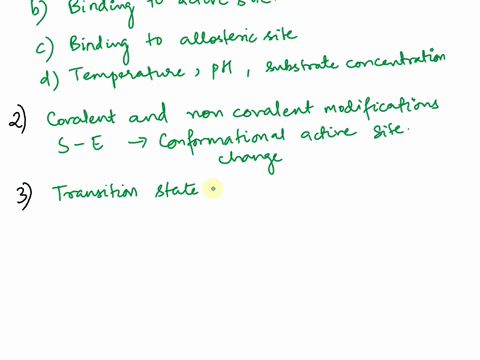 b) Binding to active
c) Binding to allosteric site
d) Temperature, pH, substrate concentration
2) Covalent and non covalent modifications
S-E → Conformational active site.
change
3) Transition state